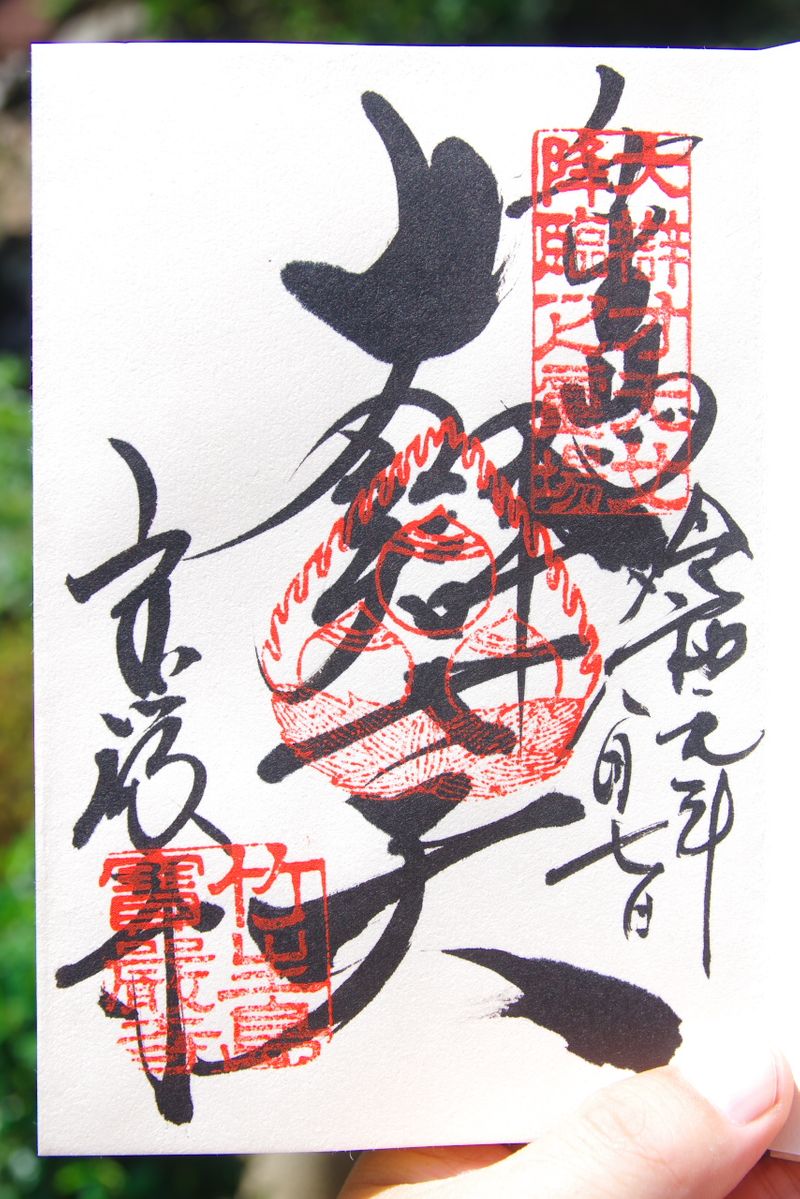 大辯才天女
降臨之靈場
令和元年
八月七日
大辯才天
宝厳寺
竹生島
寶嚴寺